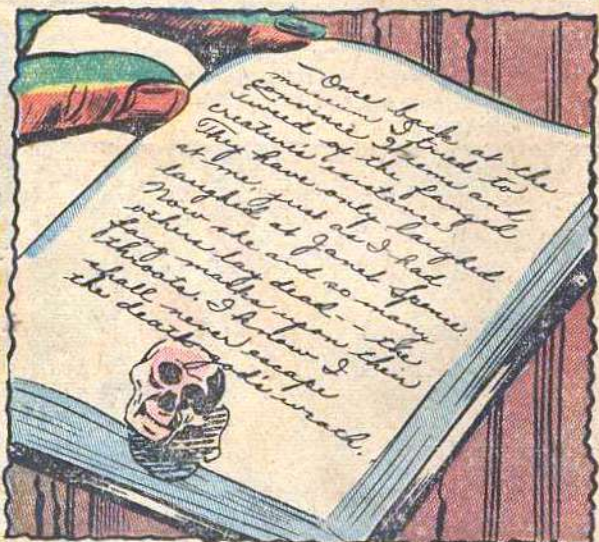 —Once back at the
museum I tried to
convince Speems and
Tweed of the fanged
creature's existance!
They have only laughed
at me, just as I had
laughed at Janet Spence.
Now she and so many
others lay dead -- the
fang marks upon their
throats. I know I
shall never escape
the death god's wrath.